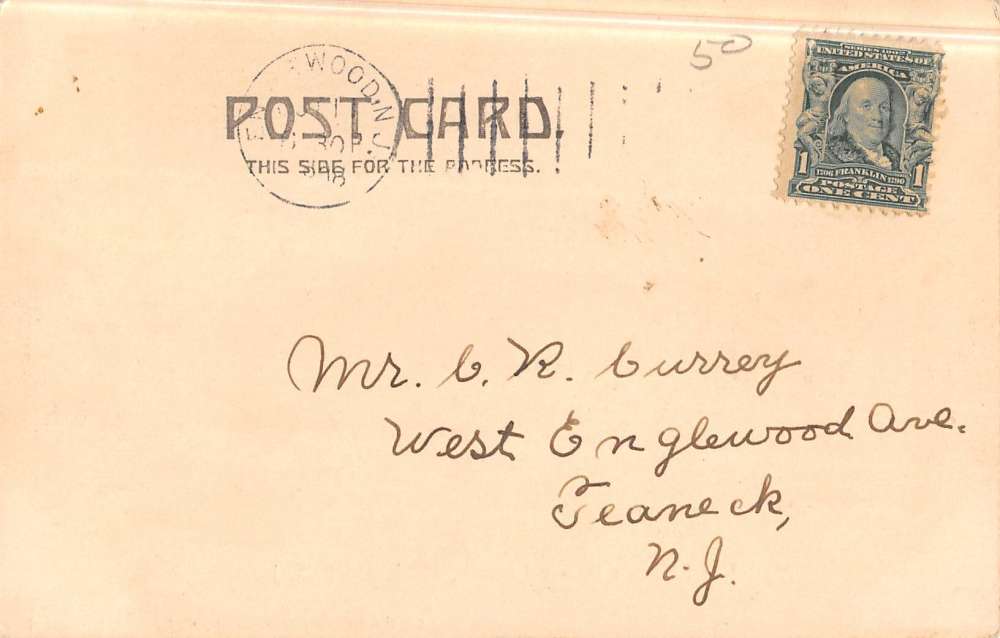 50
SERIES 1902
UNITED STATES OF
AMERICA
1 1706 FRANKLIN 1790 1
POSTAGE
ONE CENT
WOOD, N.J.
POST CARD.
THIS SIDE FOR THE ADDRESS.
Mr. C. R. Currey
West Englewood Ave.
Teaneck,
N.J.